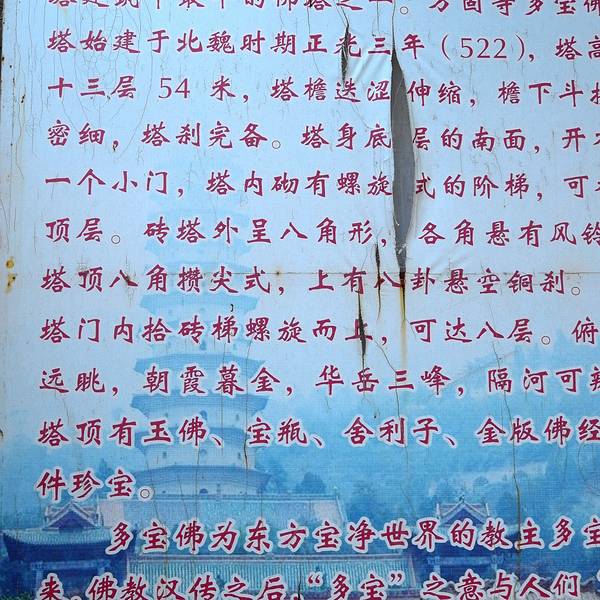 塔建筑中最早的佛塔之一。万固寺多宝佛
塔始建于北魏时期正光三年（522），塔高
十三层 54 米，塔檐迭涩伸缩，檐下斗拱
密细，塔刹完备。塔身底层的南面，开有
一个小门，塔内砌有螺旋式的阶梯，可
顶层。砖塔外呈八角形，各角悬有风铃
塔顶八角攒尖式，上有八卦悬空铜刹。
塔门内拾砖梯螺旋而上，可达八层。俯
远眺，朝霞暮金，华岳三峰，隔河可辨
塔顶有玉佛、宝瓶、舍利子、金版佛经
件珍宝。
多宝佛为东方宝净世界的教主多宝
来。佛教汉传之后，“多宝”之意与人们